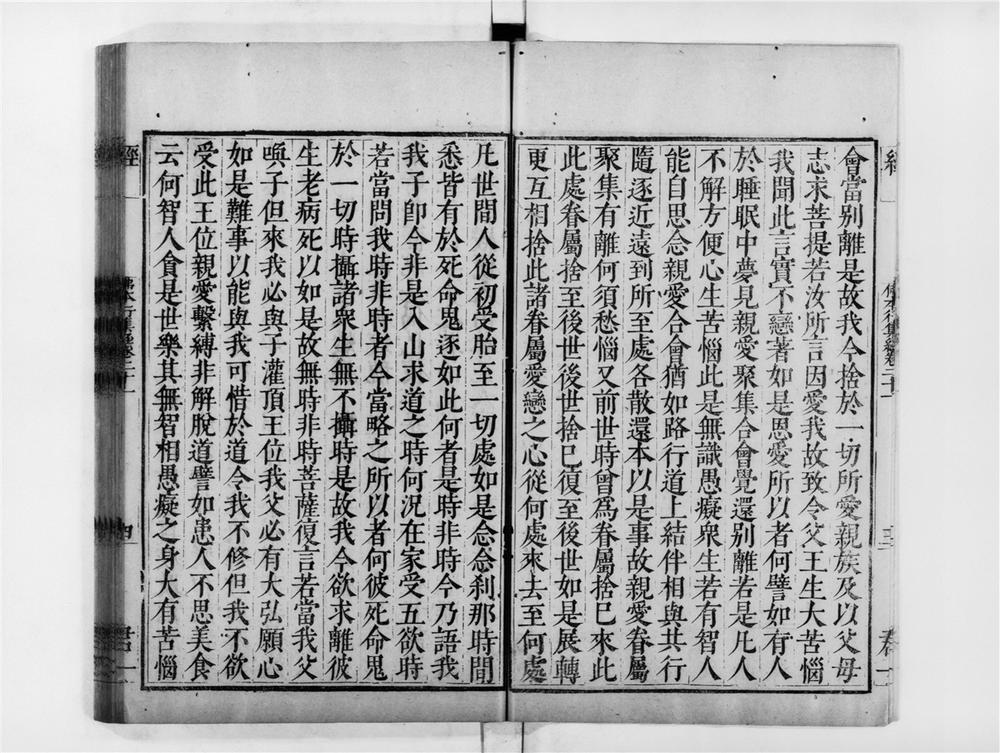 會當別離是故我今捨於一切所愛親族及以父母
志求菩提若汝所言因愛我故致令父王生大苦惱
我聞此言實不戀著如是恩愛所以者何譬如有人
於睡眠中夢見親愛聚集合會覺還別離若是凡人
不解方便心生苦惱此是無識愚癡衆生若有智人
能自思念親愛合會猶如路行道上結伴相與共行
隨逐近遠到所至處各散還本以是事故親愛眷屬
聚集有離何須愁惱又前世時曾爲眷屬捨已來此
此處眷屬捨至後世後世捨已復至後世如是展轉
更互相捨此諸眷屬愛戀之心從何處來去至何處
凡世間人從初受胎至一切處如是念念刹那時間
悉皆有於死命鬼逐如此何者是時非時今乃語我
我子卽今非是入山求道之時何況在家受五欲時
若當問我時非時者今當略之所以者何彼死命鬼
於一切時攝諸衆生無不攝時是故我今欲求離彼
生老病死以如是故無時非時菩薩復言若當我父
喚子但來我必與子灌頂王位我父必有大弘願心
如是難事以能與我可惜於道令我不修但我不欲
受此王位親愛繫縛非解脫道譬如患人不思美食
云何智人貪是世樂其無智相愚癡之身大有苦惱
經
佛本行集經卷二十一
四
君一